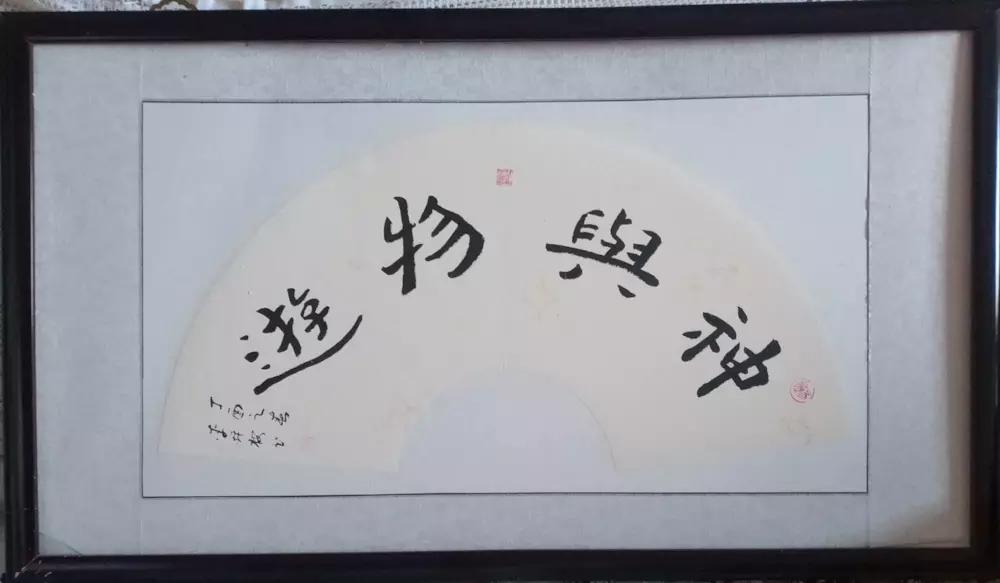 神與物遊
丁酉之春